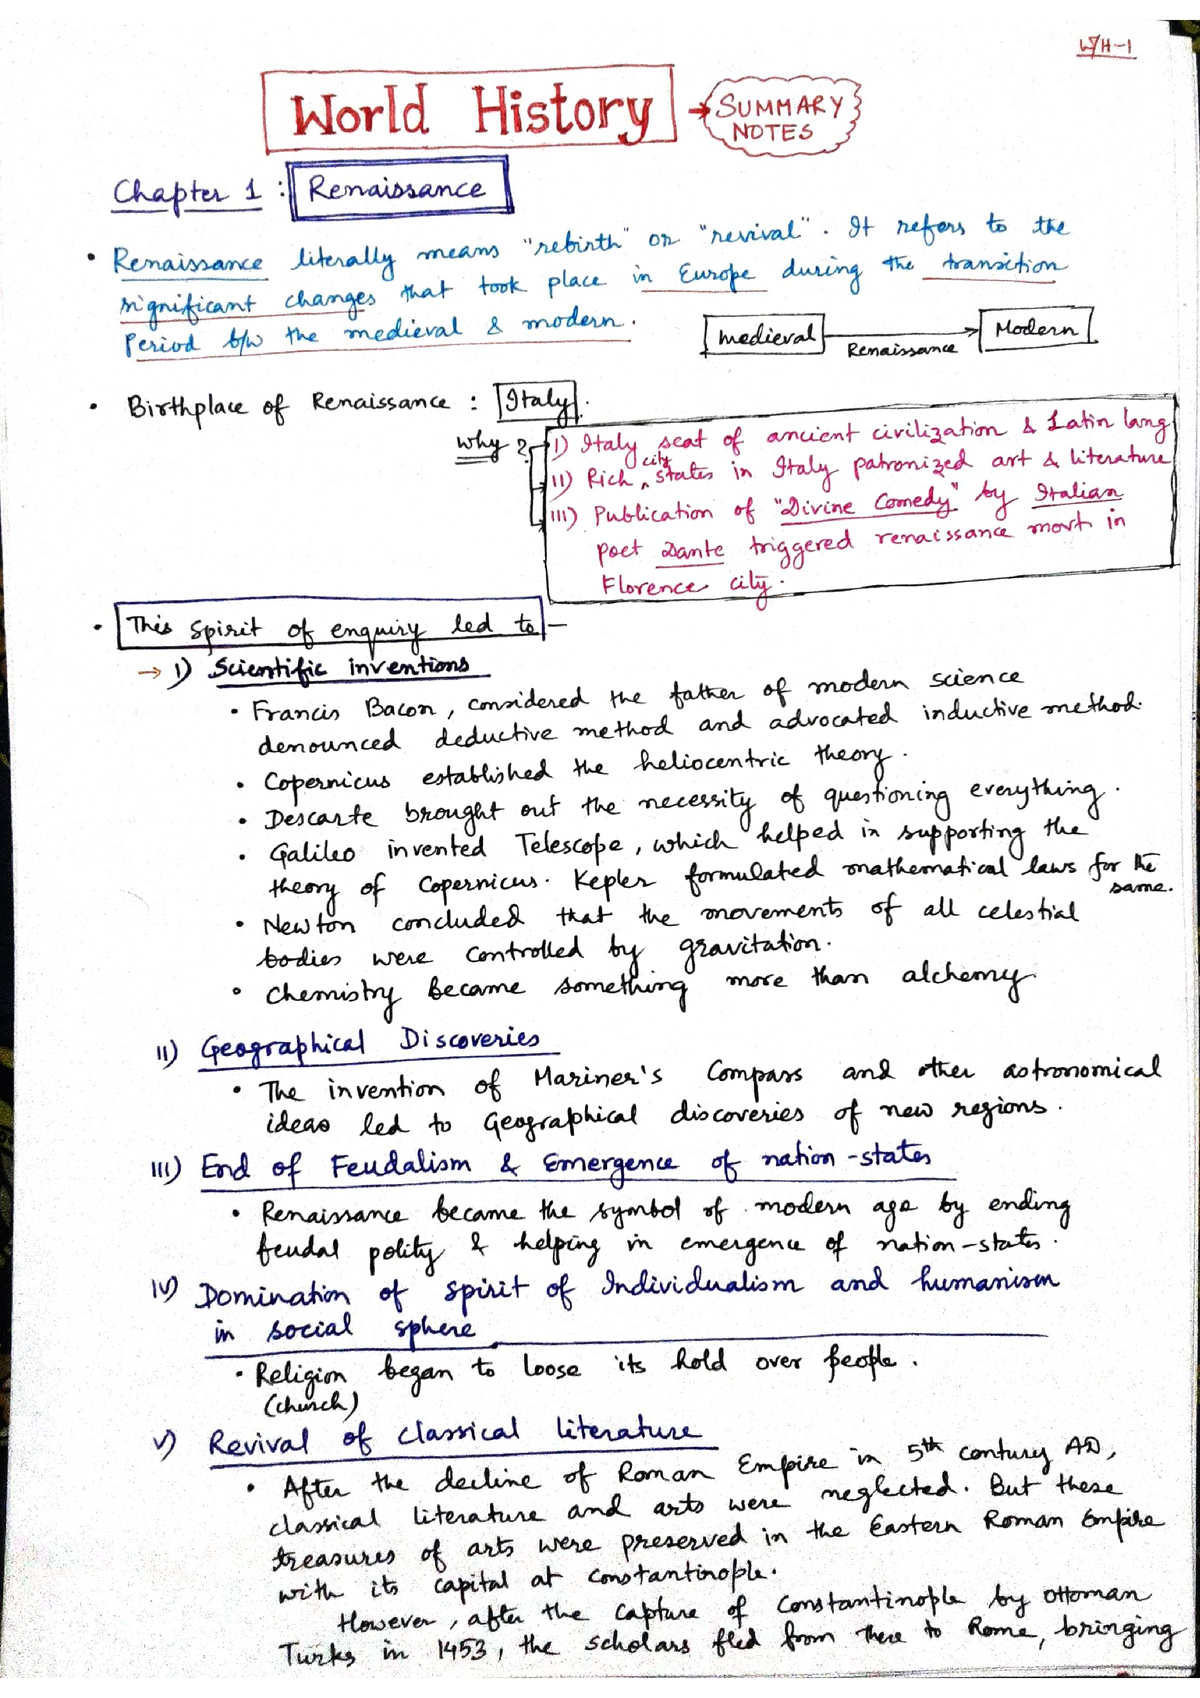 W/H-1
World History → SUMMARY
NOTES
Chapter 1 : Renaissance
• Renaissance literally means "rebirth" or "revival". It refers to the
significant changes that took place in Europe during the transition
Period b/w the medieval & modern.
medieval Renaissance Modern
• Birthplace of Renaissance : Italy.
Why? I) Italy seat of ancient civilization & Latin lang
II) Rich city states in Italy patronized art & literature
III) Publication of "Divine Comedy" by Italian
poet Dante triggered renaissance movt in
Florence city.
• This spirit of enquiry led to —
→ I) Scientific inventions
• Francis Bacon, considered the father of modern science
denounced deductive method and advocated inductive method.
• Copernicus established the heliocentric theory.
• Descarte brought out the necessity of questioning everything.
• Galileo invented Telescope, which helped in supporting the
theory of Copernicus. Kepler formulated mathematical laws for the
same.
• Newton concluded that the movements of all celestial
bodies were controlled by gravitation.
• Chemistry became something more than alchemy.
II) Geographical Discoveries
• The invention of Mariner's Compass and other astronomical
ideas led to Geographical discoveries of new regions.
III) End of Feudalism & Emergence of nation-states
• Renaissance became the symbol of modern age by ending
feudal polity & helping in emergence of nation-states.
IV) Domination of spirit of Individualism and humanism
in social sphere
• Religion began to loose its hold over people.
(church)
V) Revival of classical literature
• After the decline of Roman Empire in 5th century AD,
classical literature and arts were neglected. But these
treasures of arts were preserved in the Eastern Roman Empire
with its capital at Constantinople.
However, after the capture of Constantinople by Ottoman
Turks in 1453, the scholars fled from there to Rome, bringing